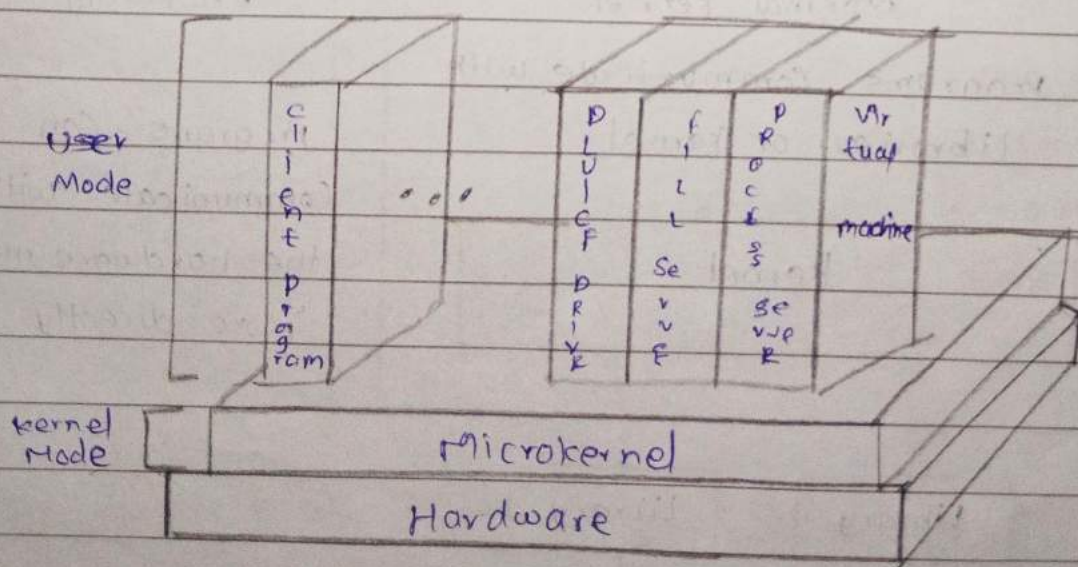 User
Mode
Client Program
...
DEVICE DRIVR
fiLL SerVE
PROCESS SerVeR
Vir
tual
machine
kernel
Mode
Microkernel
Hardware